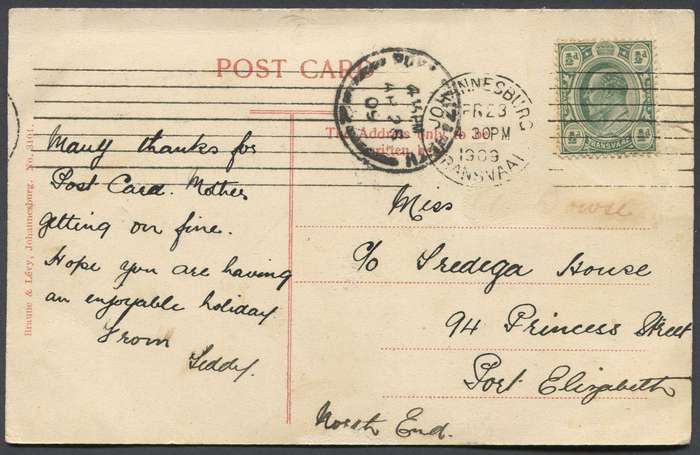 POST CARD
The Address only to be
written here
JOHANNESBURG
1909
TRANSVAAL
½d ½d
½d ½d
TRANSVAAL
Many thanks for
Post Card. Mother
getting on fine.
Hope you are having
an enjoyable holiday
From
Teddy.
Miss
c/o Tredega House
94 Princess Street
Port Elizabeth
North End.
Braune & Lévy, Johannesburg. No.